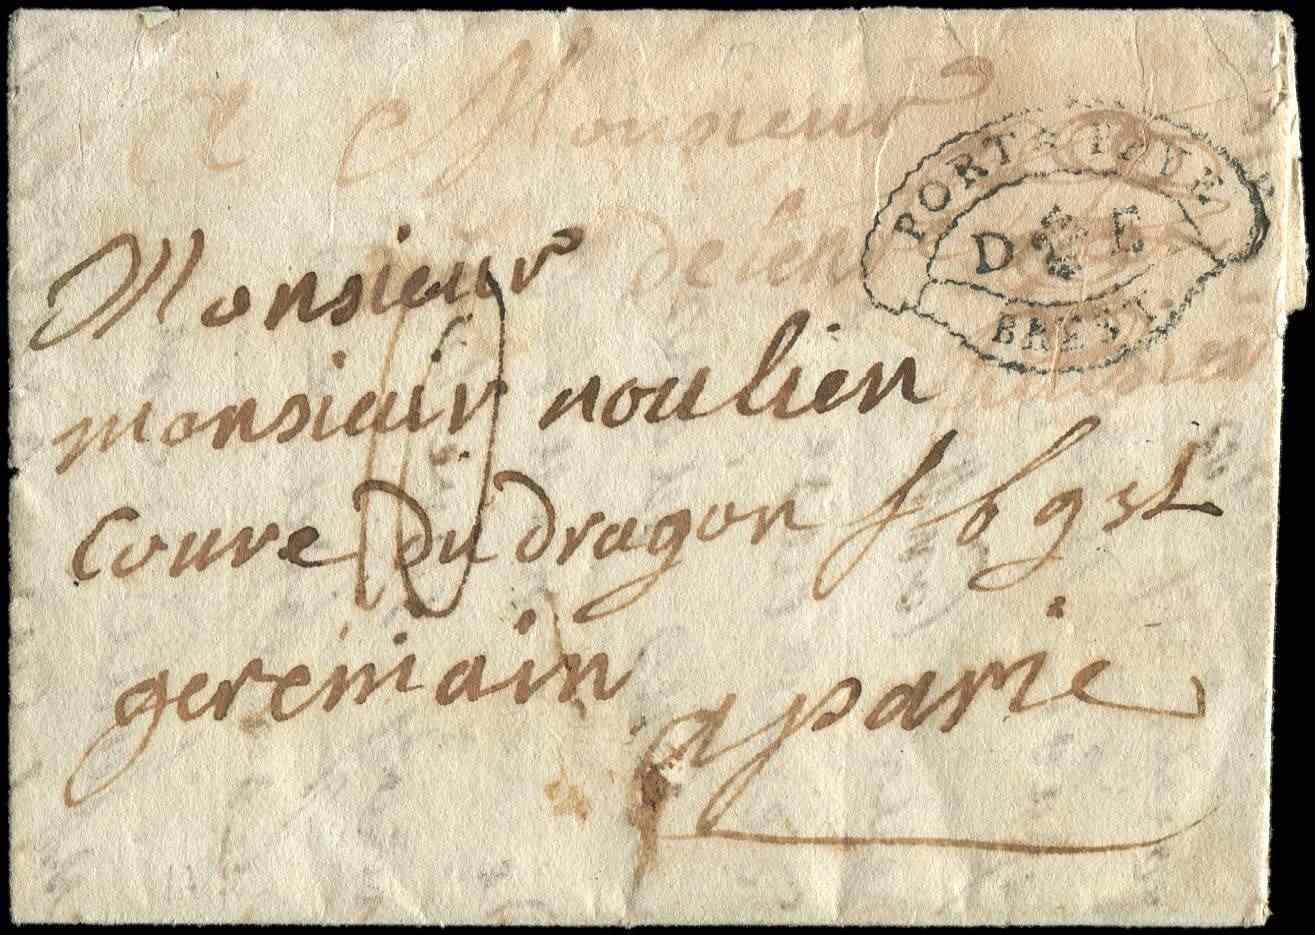 Monsieur
PORT PAYE
D E
BREST
Monsieur
monsieur noulien
Coure Du dragon f b g st
geremain
a parie